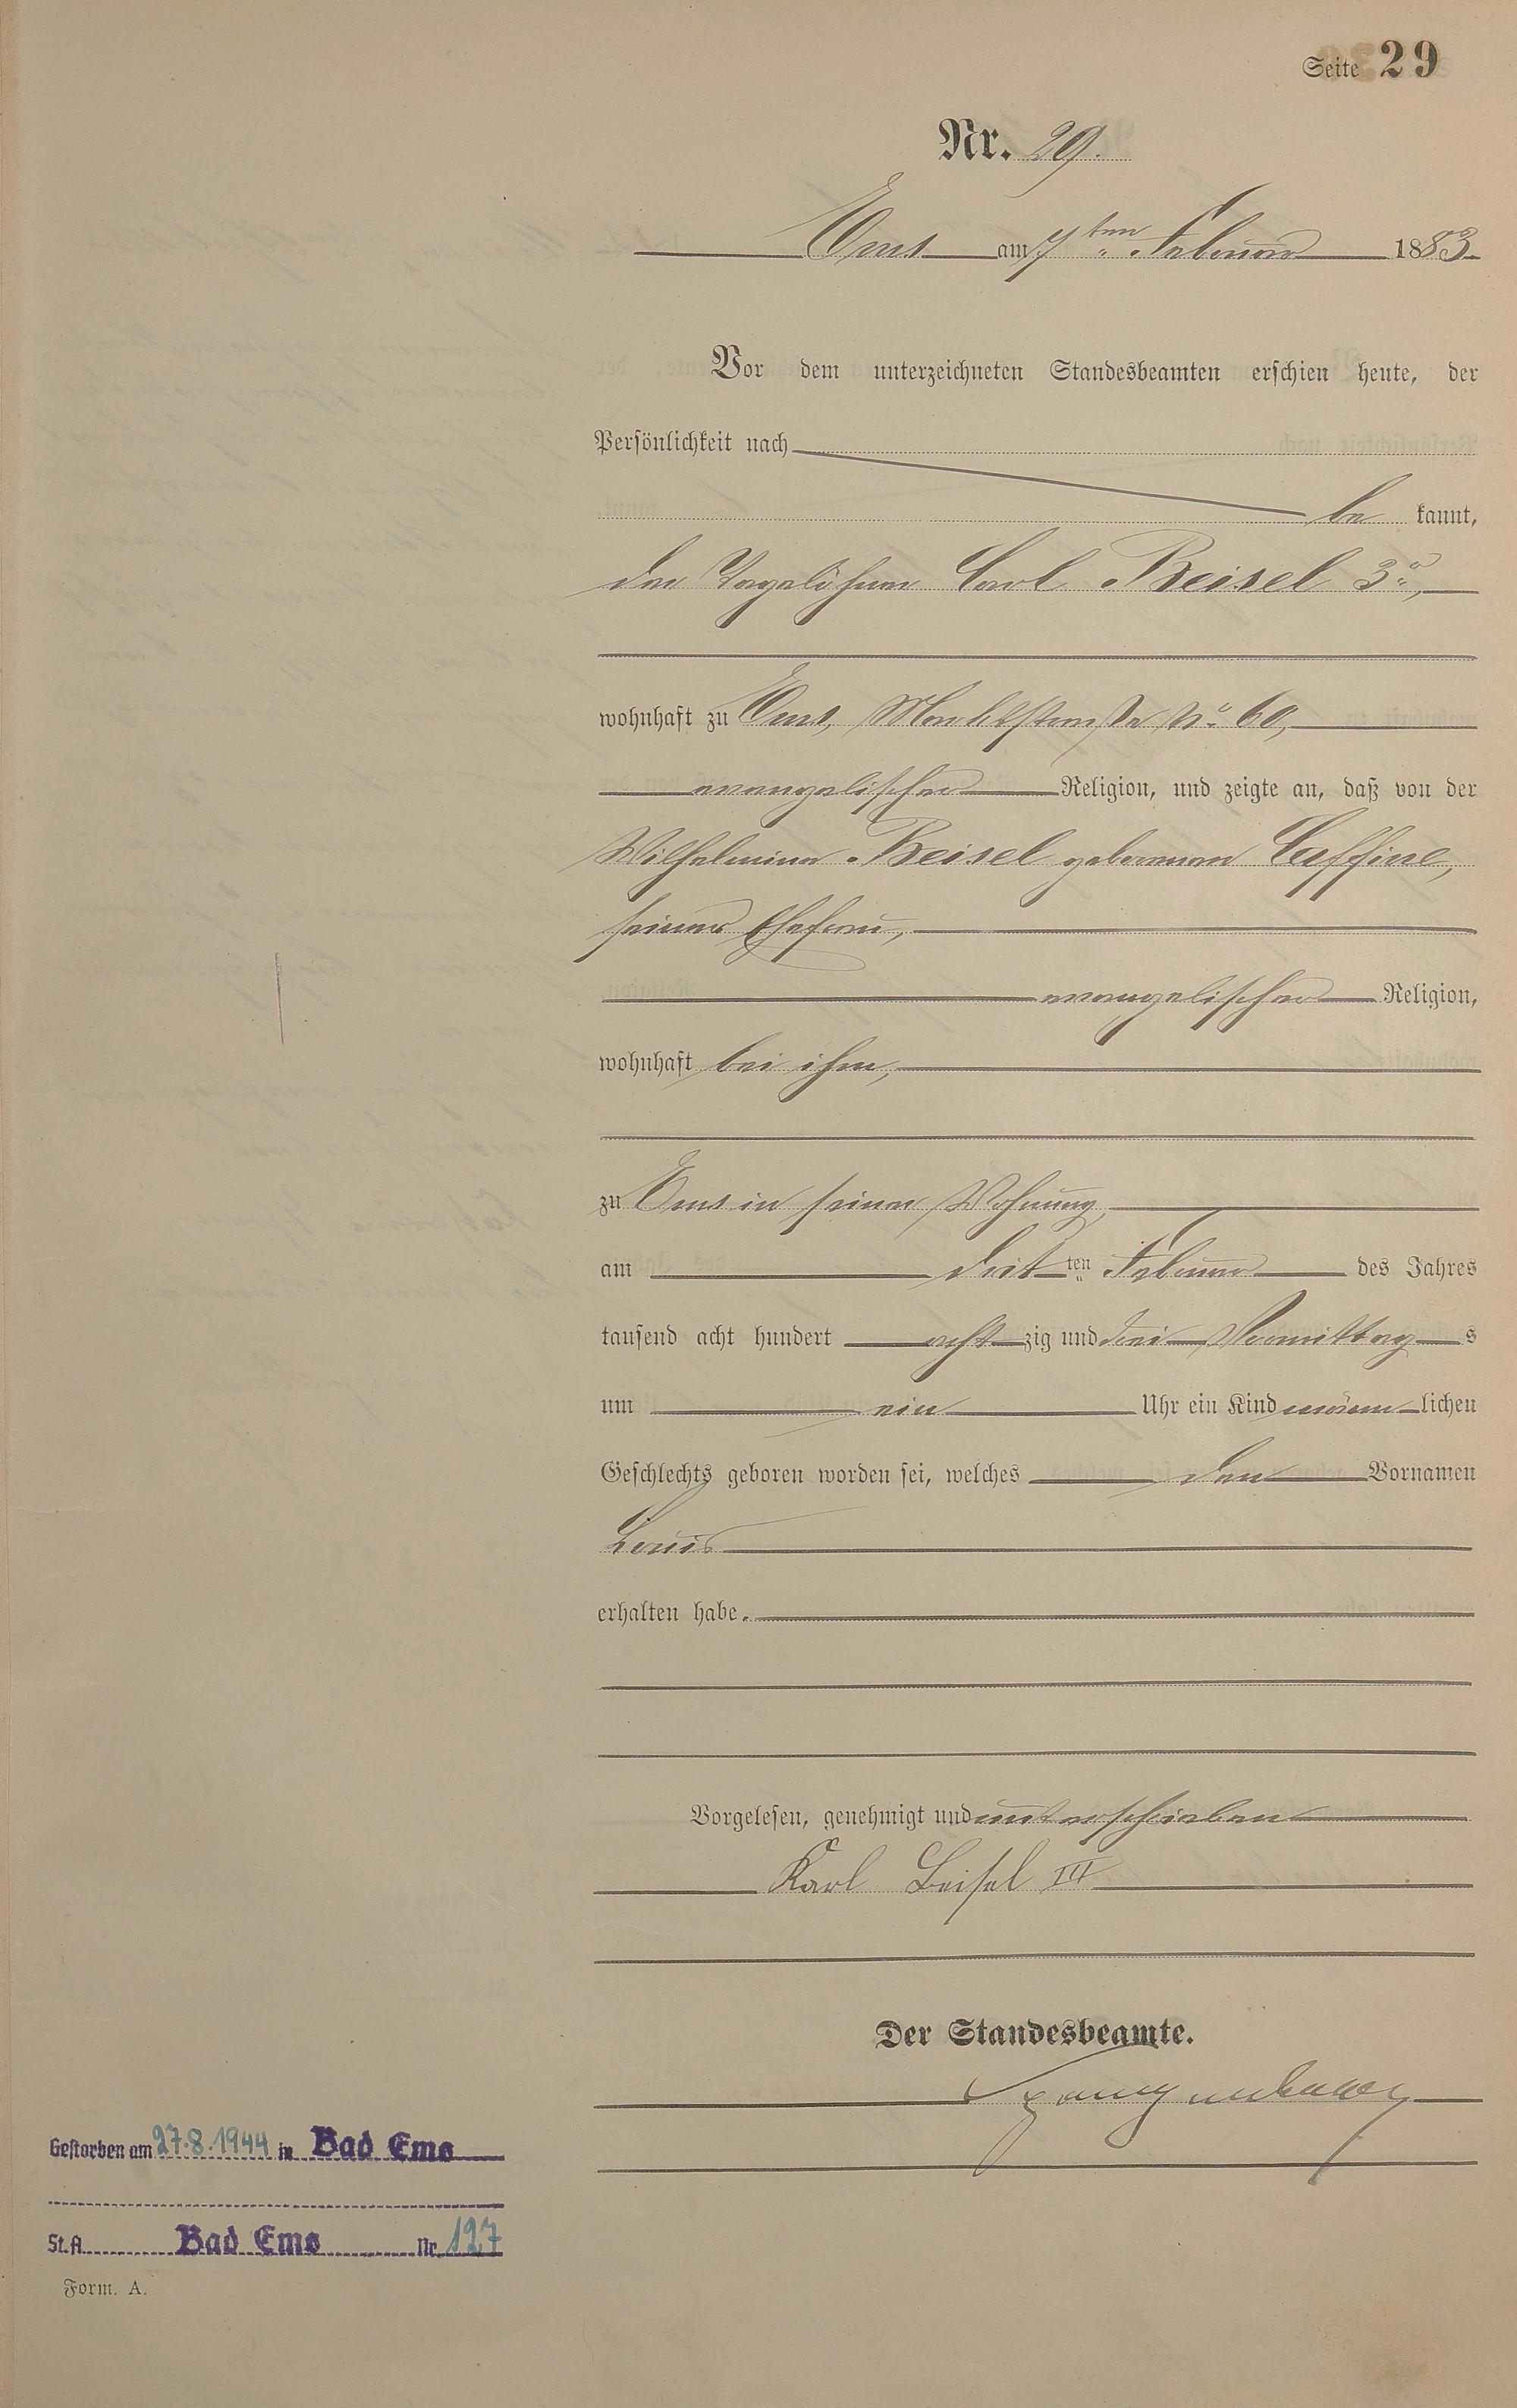 Seite 29
Nr. 29.
Ems am 7ten Februar 1883.
Vor dem unterzeichneten Standesbeamten erschien heute, der
Persönlichkeit nach
be kannt,
der Tagelöhner Carl Beisel 3r,
wohnhaft zu Ems, Marktstraße No 60,
evangelischer Religion, und zeigte an, daß von der
Wilhelmine Beisel geborenen Caffine,
seiner Ehefrau,
evangelischer Religion,
wohnhaft bei ihm,
zu Ems in seiner Wohnung,
am drit ten Februar des Jahres
tausend acht hundert acht zig und drei Vormittag s
um ein Uhr ein Kind männ lichen
Geschlechts geboren worden sei, welches den Vornamen
Louis
erhalten habe.
Vorgelesen, genehmigt und unterschrieben
Karl Beisel III
Der Standesbeamte.
Gestorben am 27.8.1944 in Bad Ems
St.A. Bad Ems Nr. 127
Form. A.